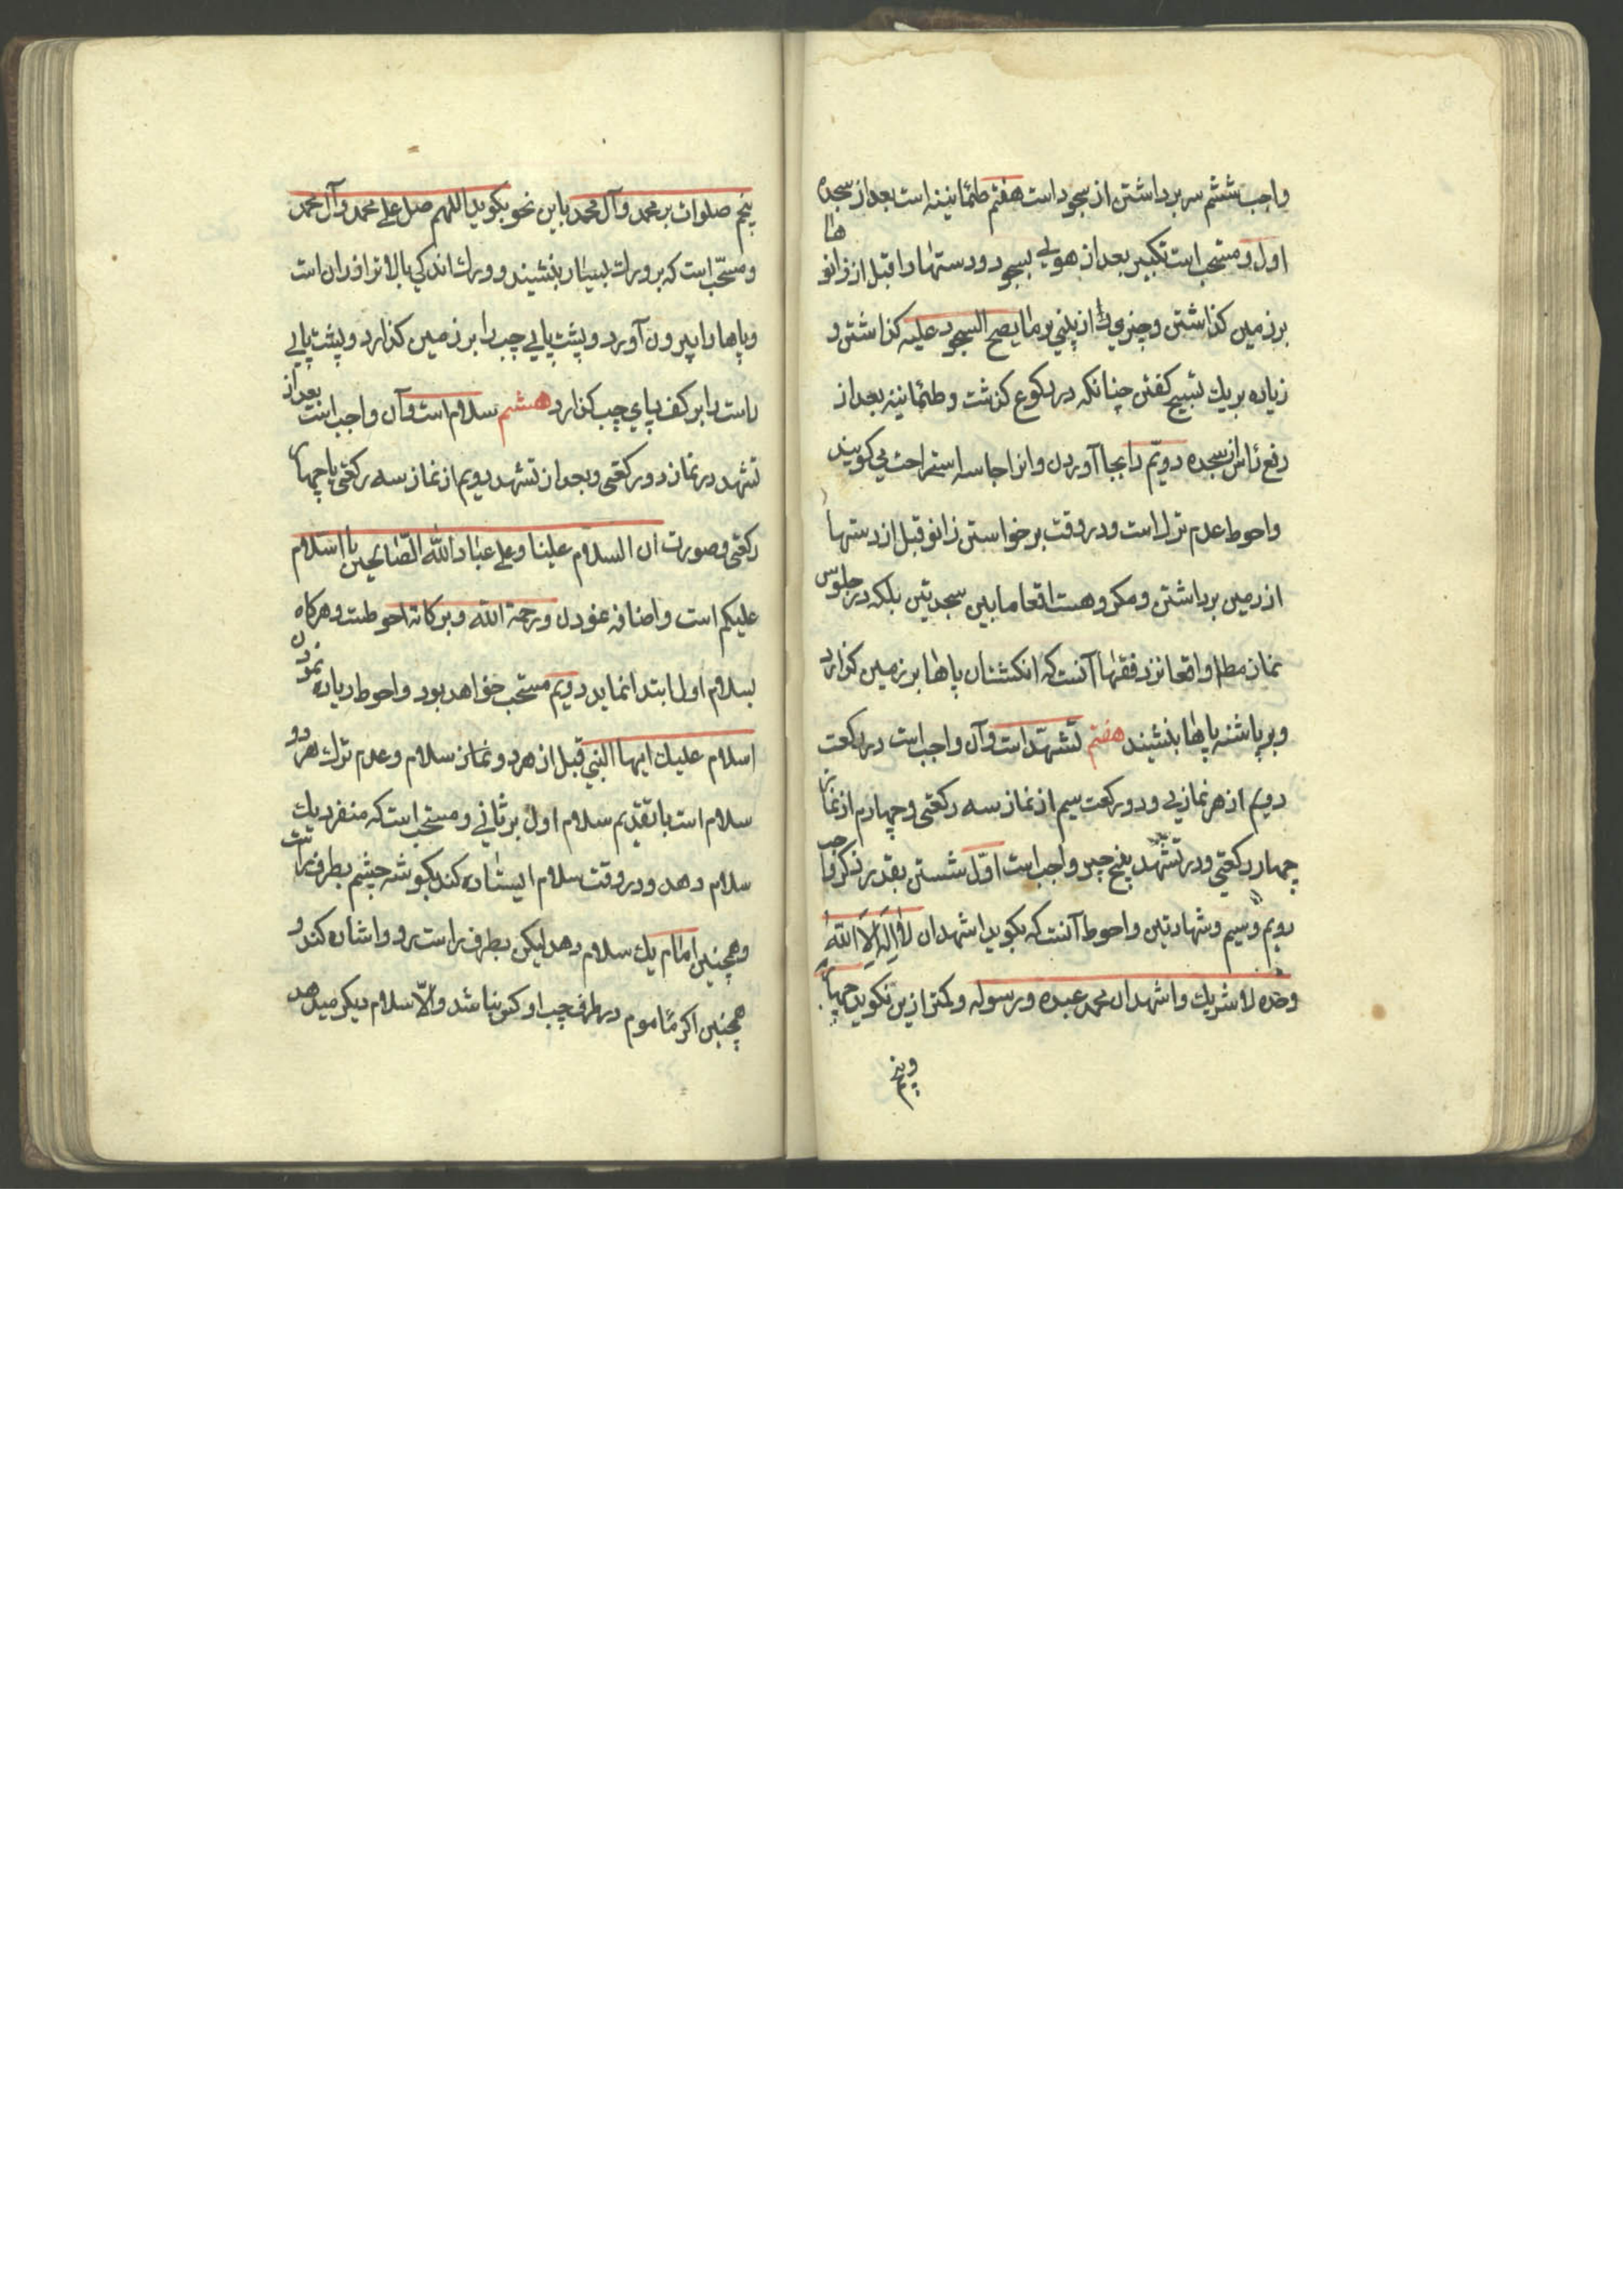 واجب ششم سر برداشتن از سجود است هفتم طمأنینه است بعد از سجده
اول و مستحب است تکبیر بعد از هوی بسجود و دستها را قبل از زانوها
بر زمین کذاشتن و چیزی از بینی بر ما یصح السجود علیه کذاشتن و
زیاده بر یك تسبیح کفتن چنانکه در رکوع کذشت و طمأنینه بعد از
رفع رأس از سجده دویّم را بجا آوردن و انرا جلسه استراحت می کویند
واحوط عدم ترك است و در وقت برخواستن زانو قبل از دستها
از زمین برداشتن و مکروهست اقعا مابین سجدتین بلکه در جلوس
نماز مطلقا و اقعا نزد فقها آنست که انکشتان پاها بر زمین کذارد
و بر پاشنه پاها بنشیند هفتم تشهّد است و آن واجب است در رکعت
دویم از هر نمازی و در رکعت سیم از نماز سه رکعتی و چهارم از نماز
چهار رکعتی و در تشهّد پنج چیز واجب است اوّل نشستن بقدر ذکر واجب
دویم و سیم و شهادتین واحوط آنست که بکوید اشهد ان لا اله الا الله
وحده لا شریك و اشهد ان محمد عبده و رسوله و کمتر ازین نکوید چهارم
پنجم صلوات بر محمد و آل محمد باین نحو بکوید اللهم صل علی محمد و آل محمد
و مستحّب است که بر ورك یسار بنشیند و ورك اندکی بالاتر از ران است
و پاها را بیرون آورد و پشت پای چپ را بر زمین کذارد و پشت پای
راست را بر کف پای چپ کذارد هشتم سلام است و آن واجب است بعد از
تشهد در نماز دو رکعتی و بعد از تشهد دویم از نماز سه رکعتی یا چهار
رکعتی و صورت ان السلام علینا و علی عباد الله الصّالحین یا السلام
علیکم است و اضافه نمودن و رحمة الله و برکاته احوطست و هرکاه
بسلام اول ابتدا نماید دویم مستحب خواهد بود و احوط زیاده نمودن
اسلام علیك ایها النبی قبل از هر دو نماز سلام و عدم ترك هر دو
سلام است با تقدیم سلام اول بر ثانی و مستحب است که منفرد یك
سلام دهد و در وقت سلام ایستاده کند بکوشه چشم بطرف راست
و همچنین امام یك سلام دهد لیکن بطرف راست رو و اشاره کند و
همچنین اکر مأموم در طرف چپ او کسی نباشد و الّا سلام دیکر میدهد